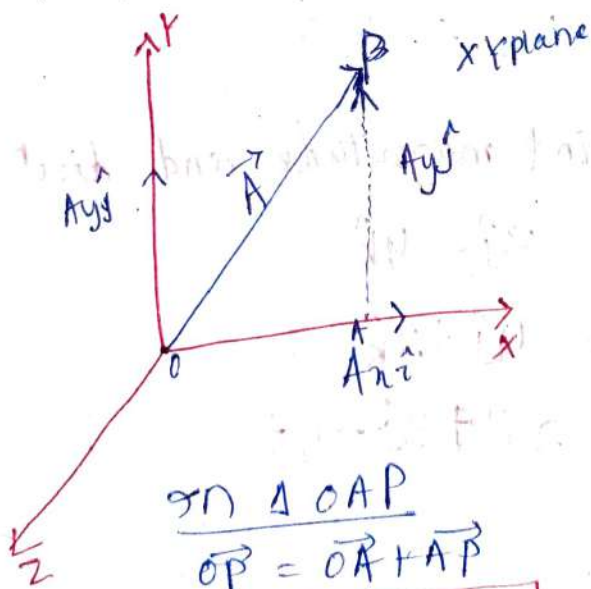 Y
P XYplane
Ayĵ
A⃗
Ayĵ
O
A
X
Axî
Z
In Δ OAP
O⃗P = O⃗A + A⃗P